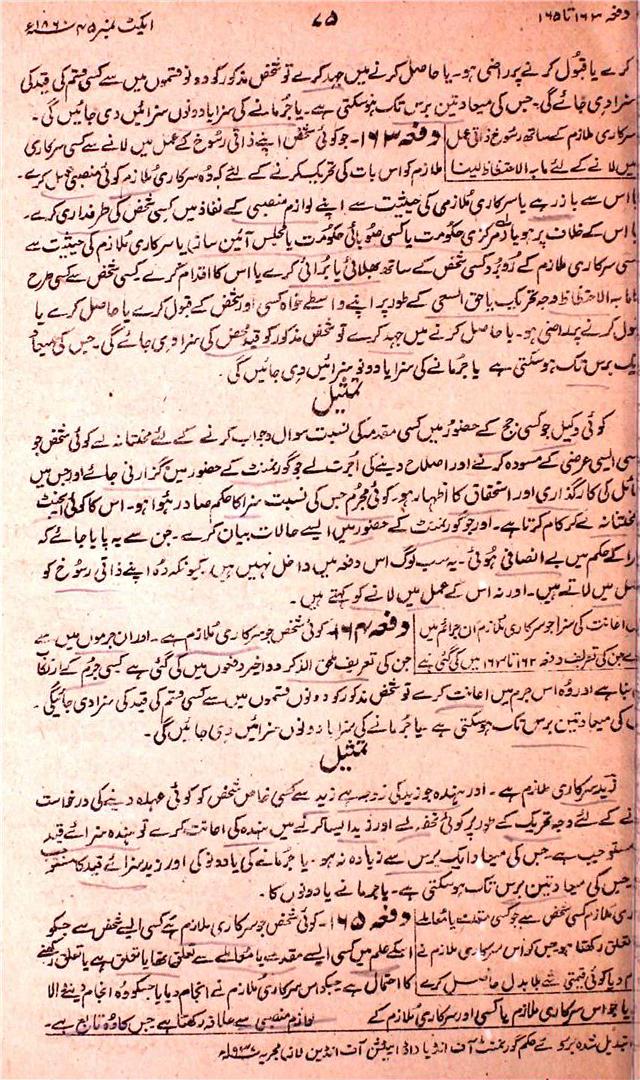 دفعہ ۱۶۳ تا ۱۶۵ ۷۵ ایکٹ نمبر ۴۵ ۱۸۶۰ء
کرے یا قبول کرنے پر راضی ہو۔ یا حاصل کرنے میں جہد کرے تو شخص مذکور کو دونو قسموں میں سے کسی قسم کی قید کی
سزا دی جائے گی۔ جس کی میعاد تین برس تک ہوسکتی ہے۔ یا جرمانے کی سزا یا دونوں سزائیں دی جائیں گی۔
سرکاری ملازم کے ساتھ رسوخ ذاتی عمل دفعہ ۱۶۳۔ جو کوئی شخص اپنے ذاتی رسوخ کے عمل میں لانے سے کسی سرکاری
میں لانے کے لئے مابہ الاحتظاظ لینا ملازم کو اس بات کی تحریک کرنے کے لئے کہ وُہ سرکاری ملازم کوئی منصبی عمل کرے۔
یا اس سے باز رہے یا سرکاری ملازمی کی حیثیت سے اپنے لوازم منصبی کے نفاذ میں کسی شخص کی طرفداری کرے۔
یا اس کے خلاف پر ہو یا مرکزی حکومت یا کسی صوبائی حکومت یا مجلس آئین ساز یا سرکاری ملازم کی حیثیت سے
کسی سرکاری ملازم کے رُوبرُو کسی شخص کے ساتھ بھلائی یا بُرائی کرے یا اس کا اقدام کرے کسی شخص سے کسی طرح
مابہ الاحتظاظ وجہ تحریک یا حق السعی کے طور پر اپنے واسطے خواہ کسی اور شخص کے قبول کرے یا حاصل کرے یا
قبول کرنے پر راضی ہو۔ یا حاصل کرنے میں جہد کرے تو شخص مذکور کو قید محض کی سزا دی جائے گی۔ جس کی میعاد
ایک برس تک ہوسکتی ہے یا جرمانے کی سزا یا دونو سزائیں دی جائیں گی۔
تمثیل
کوئی وکیل جو کسی جج کے حضور میں کسی مقدمہ کی نسبت سوال وجواب کرنے کے لئے محنتانہ لے کوئی شخص جو
کسی ایسی عرضی کے مسودہ کرنے اور اصلاح دینے کی اجرت لے جو گورنمنٹ کے حضور میں گزرانی جائے اور جس میں
سائل کی کارگذاری اور استحقاق کا اظہار ہو۔ کوئی مجرم جس کی نسبت سزا کا حکم صادر ہوا ہو۔ اس کا کوئی ایجنٹ
محنتانہ لے کر کام کرتا ہے۔ اور جو گورنمنٹ کے حضور میں ایسے حالات بیان کرے۔ جن سے یہ پایا جائے کہ
سزا کے حکم میں بے انصافی ہوئی۔ یہ سب لوگ اس دفعہ میں داخل نہیں ہیں کیونکہ وہ اپنے ذاتی رسوخ کو
عمل میں لاتے ہیں۔ اور نہ اس کے عمل میں لانے کو کہتے ہیں۔
اعانت کی سزا جو سرکاری ملازم ان جرائم میں دفعہ ۱۶۴۔ کوئی شخص جو سرکاری ملازم ہے۔ اور ان جرموں میں سے
کرے جن کی تعریف دفعہ ۱۶۲ تا ۱۶۳ میں کی گئی ہے جن کی تعریف ملحق الذکر دو اخیر دفعوں میں کی گئی ہے کسی جرم کے ارتکاب
اور وُہ اس جرم میں اعانت کرے تو شخص مذکور کو دونوں قسموں میں سے کسی قسم کی قید کی سزا دی جائیگی۔
جس کی میعاد تین برس تک ہوسکتی ہے۔ یا جرمانے کی سزا یا دونوں سزائیں دی جائیں گی۔
تمثیل
زید سرکاری ملازم ہے۔ اور ہندہ جو زید کی زوجہ ہے زید سے کسی خاص شخص کو کوئی عہدہ دینے کی درخواست
کرنے کے لئے وجہ تحریک کے طور پر کوئی تحفہ لے اور زید ایسا کرنے میں ہندہ کی اعانت کرے تو ہندہ سزائے قید
مستوجب ہے جس کی میعاد ایک برس سے زیادہ نہ ہو۔ یا جرمانے کی یا دونو کی اور زید سزائے قید کا مستوجب
جس کی میعاد تین برس تک ہوسکتی ہے۔ یا جرمانے یا دونوں کا۔
سرکاری ملازم کسی شخص سے جو کسی مقدمے یا معاملے دفعہ ۱۶۵۔ کوئی شخص جو سرکاری ملازم ہے کسی ایسے شخص سے جسکو
تعلق رکھتا ہو جس کو اس سرکاری ملازم نے اسکے علم میں کسی ایسے مقدمے یا معاملے سے تعلق تھا یا تعلق ہے یا تعلق رکھنے
انجام دیا کوئی قیمتی شے بلا بدل حاصل کرے کا احتمال ہے جسکو اس سرکاری ملازم نے انجام دیا یا جسکو وہ انجام دینے والا
یا جو اس سرکاری ملازم یا کسی اور سرکاری ملازم کے لوازم منصبی سے علاقہ رکھتا ہے جس کا وہ تابع ہے۔
تبدیل شدہ بروئے حکم گورنمنٹ آف انڈیا (اڈاپٹیشن آف انڈین لاز) مجریہ ۱۹۳۷ء